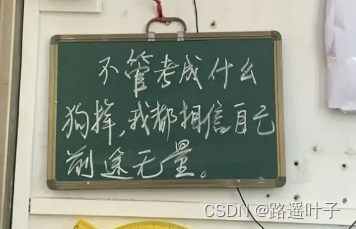 不管考成什么
狗样,我都相信自己
前途无量。
CSDN @路遥叶子